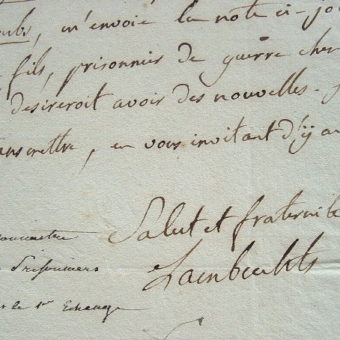 m'envoie la note ci-jo
fils, prisonnier de guerre che
desireroit avoir des nouvelles.
ansmettre, en vous invitant d'y a
Salut et fraternité
Lambrechts
Prisonniers
Echange